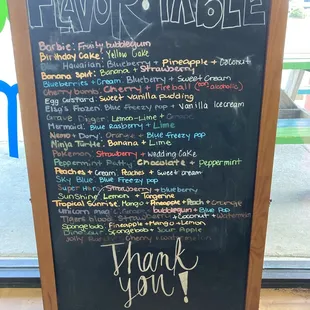 FLAVOR TABLE
Barbie: Fruity bubblegum
Birthday Cake: Yellow Cake
Blue Hawaiian: Blueberry + Pineapple + Coconut
Banana Split: Banana + Strawberry
Blueberries + Cream: Blueberry + Sweet Cream
Cherry bombs: Cherry + Fireball (non alcoholic)
Egg Custard: Sweet vanilla pudding
Elsa's Frozen: Blue Freezy pop + Vanilla Icecream
Grave Digger: Lemon-Lime + Grape
Mermaid: Blue Raspberry + Lime
Nemo + Dory: Orange + Blue Freezy pop
Ninja Turtle: Banana + Lime
Pokemon: Strawberry + Wedding Cake
Peppermint Patty: Chocolate + Peppermint
Peaches + Cream: Peaches + Sweet cream
Sky Blue: Blue Freezy pop
Super Hero: Strawberry + blueberry
Sunshine: Lemon + Tangerine
Tropical Sunrise: Mango + Pineapple + Peach + Orange
Unicorn + bubblegum + Blue Pop
Tigers blood: Strawberry + Coconut + Watermelon
Spongebob: Pineapple + Mango + Lemon
Dinosaur: Spongebob + Sour Apple
Jolly Cherry + Watermelon
Thank
you!